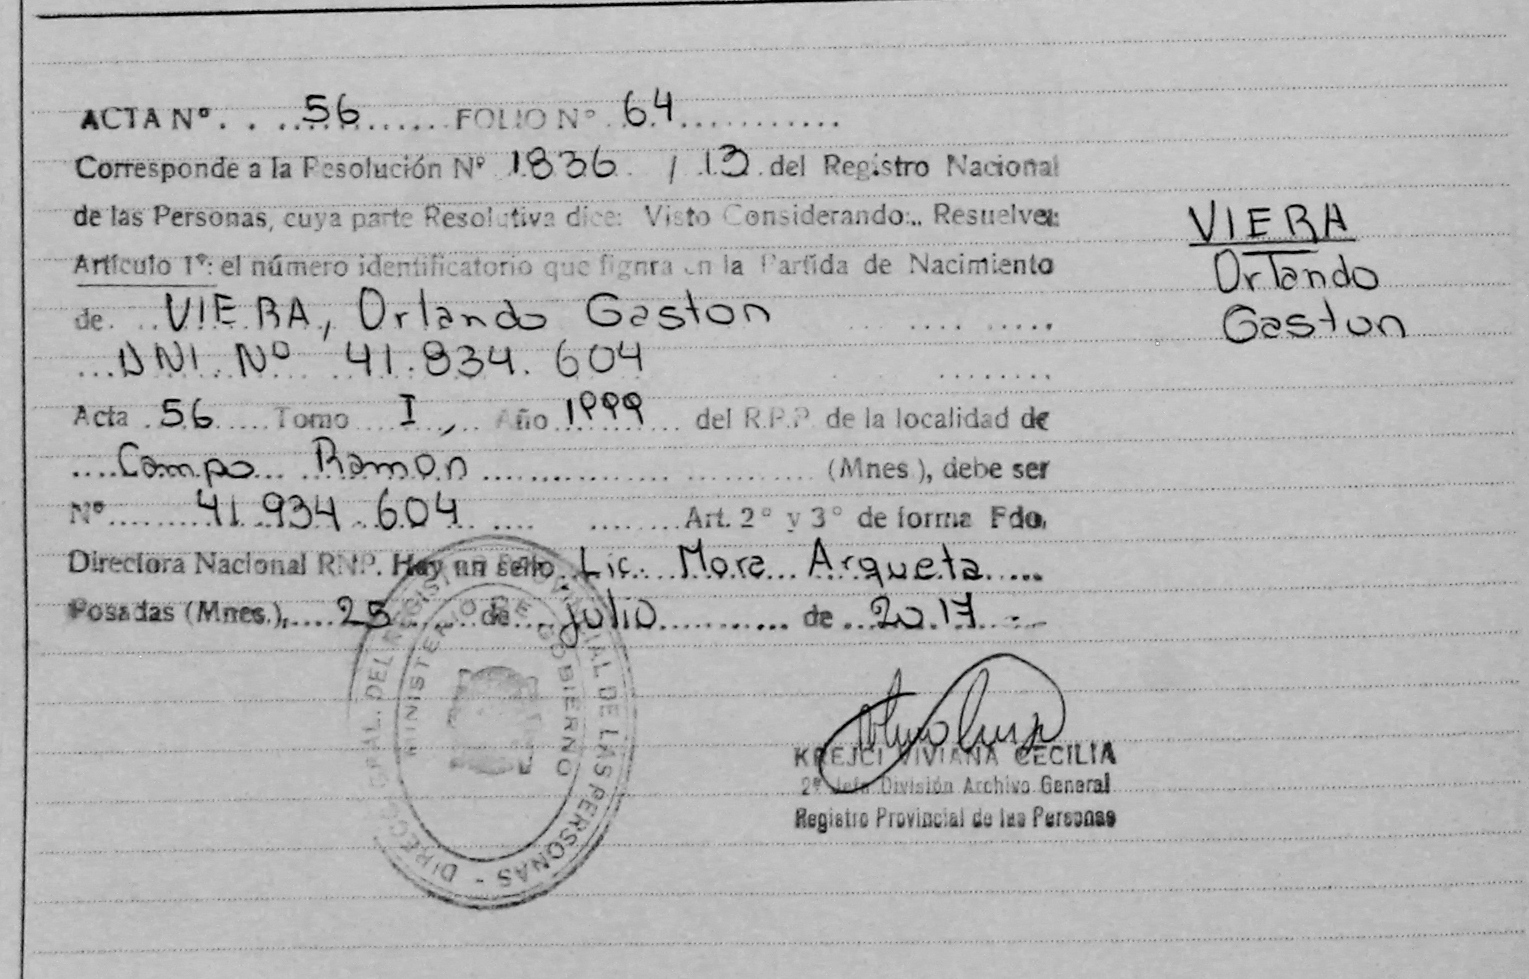 ACTA Nº. . ...56....... FOLIO Nº .64...........
Corresponde a la Resolución Nº 1836. / 13. del Registro Nacional
de las Personas, cuya parte Resolutiva dice: Visto Considerando:.. Resuelve:
Artículo 1º: el número identificatorio que fignra en la Partida de Nacimiento
de. ..VIERA, Orlando Gaston
...DNI Nº 41.834.604
Acta .56.... Tomo ...I.,.. Año 1999 ... del R.P.P. de la localidad de
....Campo... Ramon .................. (Mnes.), debe ser
Nº...... 41.934.604 .... ........Art. 2º y 3º de forma Fdo.
Directora Nacional RNP. Hay un sello .Lic. Mora... Arqueta.....
Posadas (Mnes.),....25..... de ...julio........... de ..2017 .--
VIERA
Orlando
Gaston
DIRECC. GRAL. DEL REGISTRO PROVINCIAL DE LAS PERSONAS -
MINISTERIO DE GOBIERNO
KREJCI VIVIANA CECILIA
2º Jefe División Archivo General
Registro Provincial de las Personas